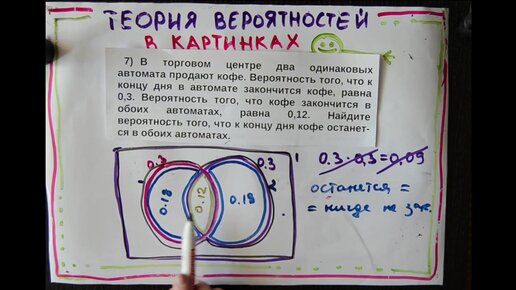 ТЕОРИЯ ВЕРОЯТНОСТЕЙ
В КАРТИНКАХ
7) В торговом центре два одинаковых
автомата продают кофе. Вероятность того, что к
концу дня в автомате закончится кофе, равна
0,3. Вероятность того, что кофе закончится в
обоих автоматах, равна 0,12. Найдите
вероятность того, что к концу дня кофе останет-
ся в обоих автоматах.
0.3 0.3 1
1 2
0.18 0.12 0.18
0.3·0,3=0,09
останется =
= нигде не зак.